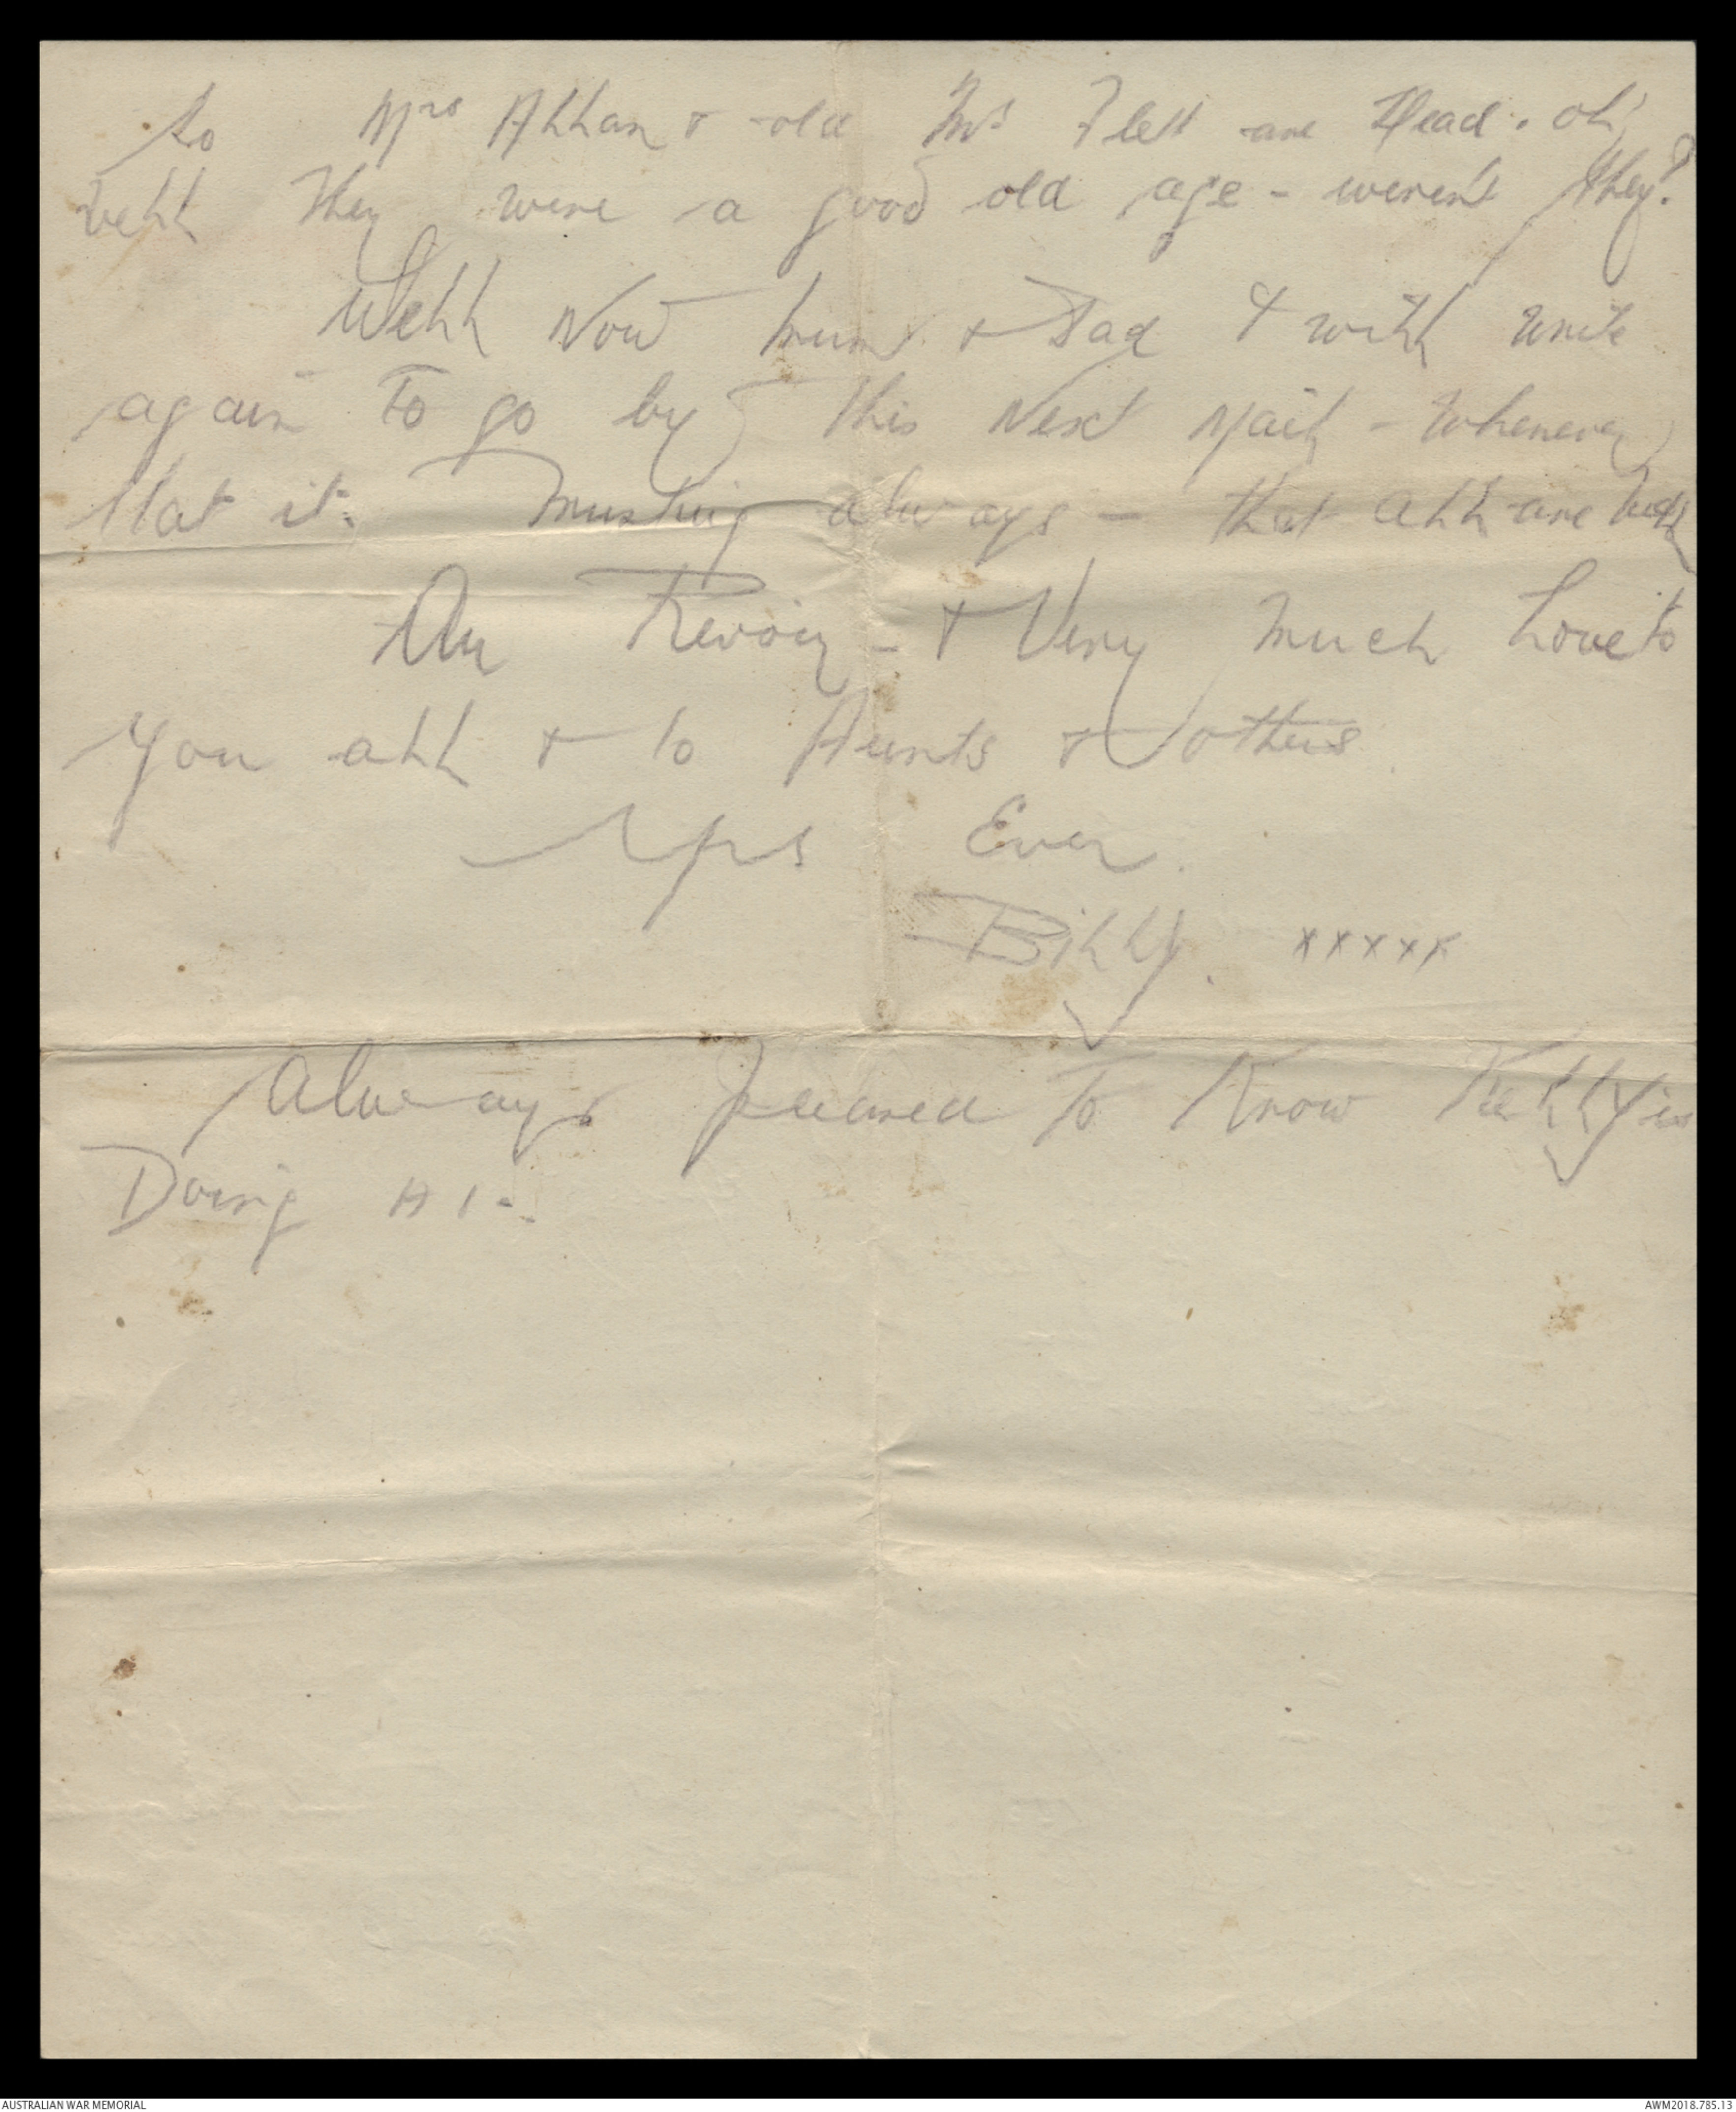 So Mrs Allan & old Mrs Flett are Dead. Oh,
well They were a good old age - weren't they?
Well Now Mum & Dad I will write
again To go by This Next Mail - whenever
that is. Trusting always - that all are well
Au Revoir - & Very Much Love to
You all & to Aunts & others
Yrs Ever.
Billy. xxxxx
Always pleased To Know Kelly is
Doing A1..
AUSTRALIAN WAR MEMORIAL
AWM2018.785.13